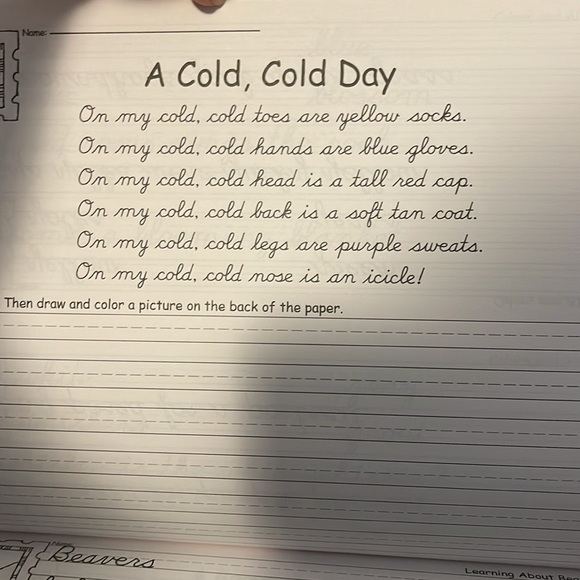 Name:
A Cold, Cold Day
On my cold, cold toes are yellow socks.
On my cold, cold hands are blue gloves.
On my cold, cold head is a tall red cap.
On my cold, cold back is a soft tan coat.
On my cold, cold legs are purple sweats.
On my cold, cold nose is an icicle!
Then draw and color a picture on the back of the paper.
Beavers
Learning About